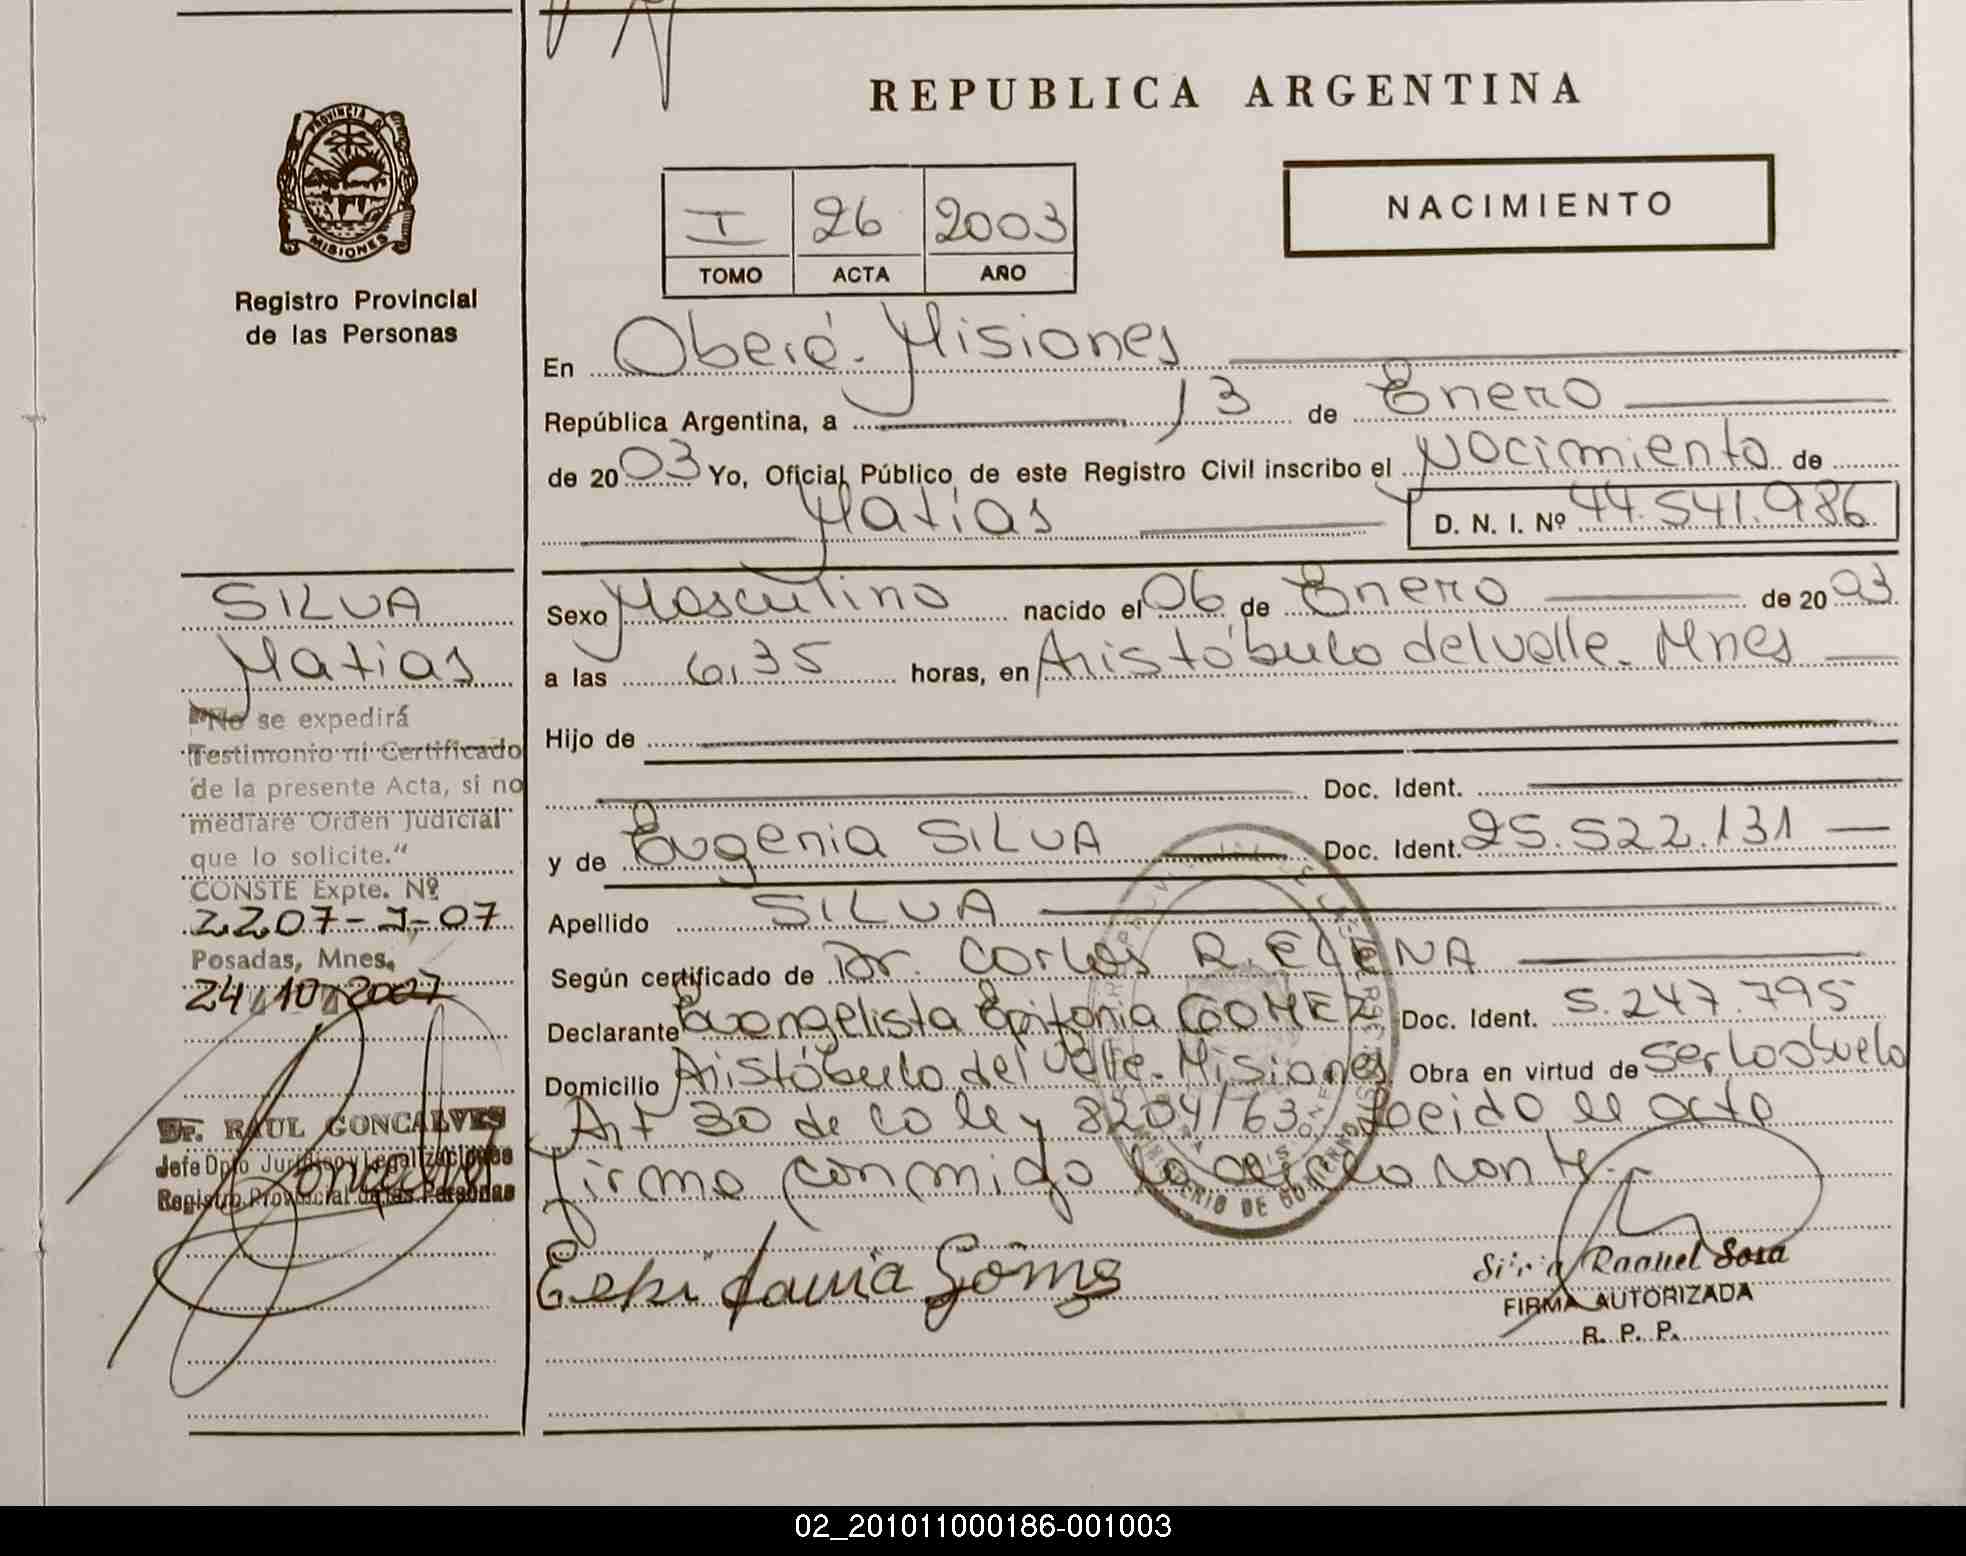 REPUBLICA ARGENTINA
PROVINCIA D
MISIONES
Registro Provincial
de las Personas
I 26 2003
TOMO ACTA AÑO
NACIMIENTO
En Oberá - Misiones
República Argentina, a 13 de Enero
de 2003 Yo, Oficial Público de este Registro Civil inscribo el Nacimiento de
Matías D. N. I. Nº 44.541.986
Sexo Masculino nacido el 06 de Enero de 2003
a las 6,35 horas, en Aristóbulo del valle - Mnes
Hijo de
Doc. Ident.
y de Eugenia SILVA Doc. Ident. 25.522.131
Apellido SILVA
Según certificado de Dr. Carlos R.
Declarante Evangelista Epifania GOMEZ Doc. Ident. 5.247.795
Domicilio Aristóbulo del Valle - Misiones Obra en virtud de ser la abuela
Art 30 de la ley 8204/63. Leido el acta
firma conmigo la declarante.
Epifania Gomes
Raquel Sosa
FIRMA AUTORIZADA
R. P. P.
SILVA
Matías
"No se expedirá
Testimonio ni Certificado
de la presente Acta, si no
mediare Orden Judicial
que lo solicite."
CONSTE Expte. Nº
2207-J-07
Posadas, Mnes,
24/10/2007
Dr. RAUL GONCALVES
Jefe Dpto Jurídico y Legalizaciones
Registro Provincial de las Personas
MINISTERIO DE GOBIERNO
02_201011000186-001003